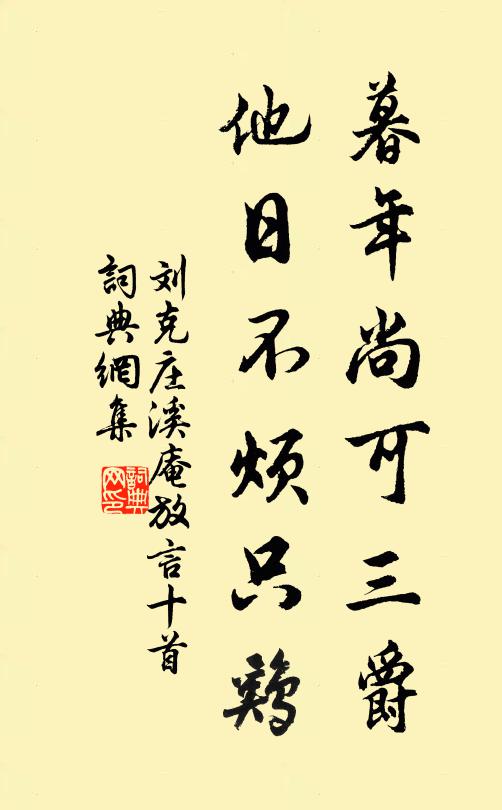 暮年尚可三爵
他日不烦只鸡
刘克庄溪庵放言十首
詞典網集
詞典
网印